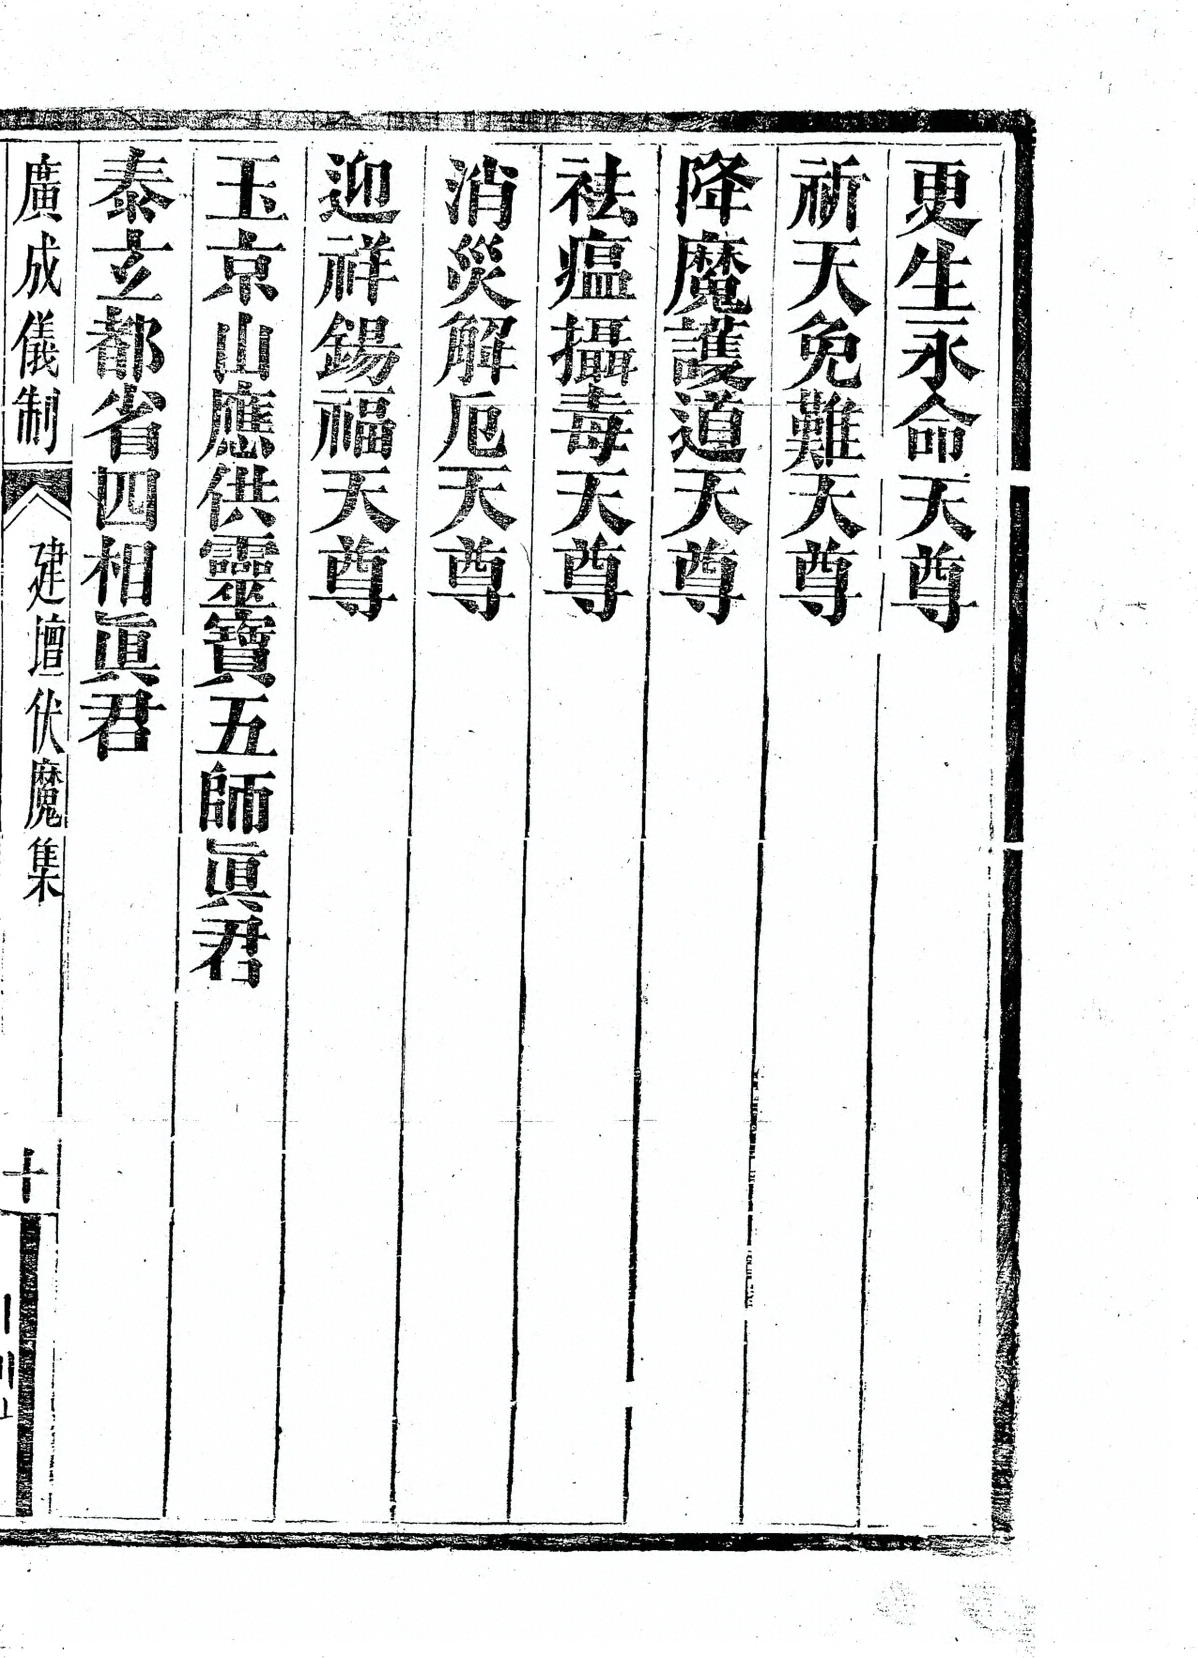 更生永命天尊
祈天免難天尊
降魔護道天尊
祛瘟攝毒天尊
消災解厄天尊
迎祥錫福天尊
玉京山應供靈寶五師眞君
泰玄都省四相眞君
廣成儀制
建壇伏魔集
十